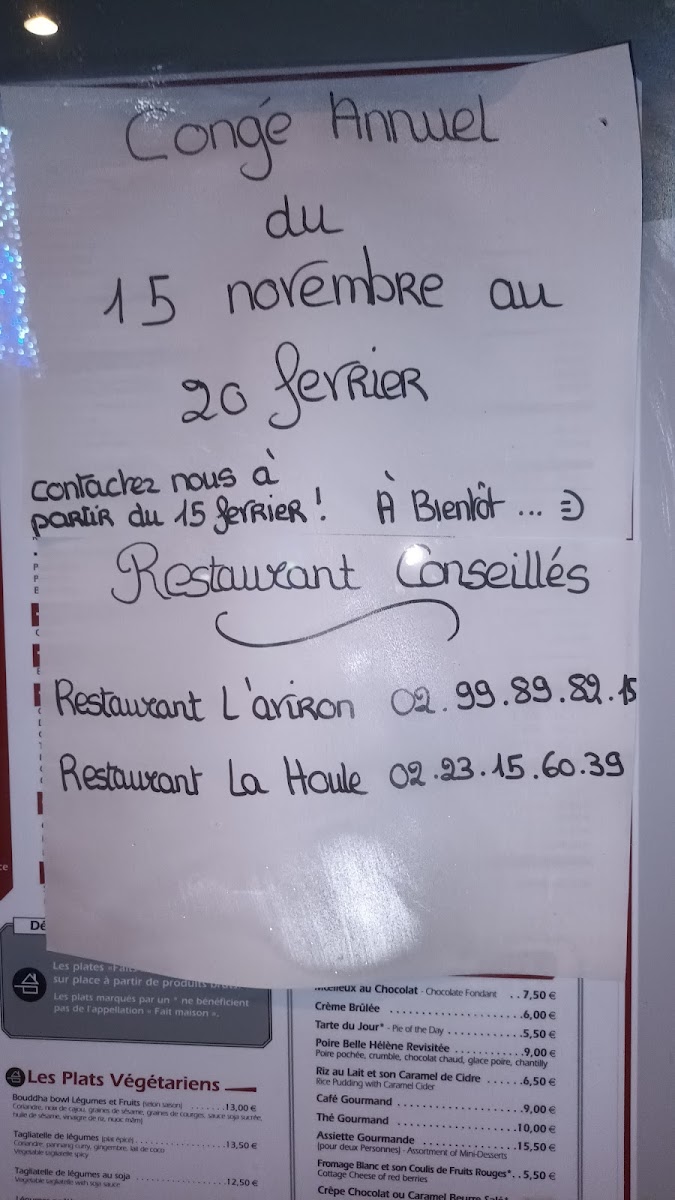 Congé Annuel
du
15 novembre au
20 fevrier
contactez nous à
partir du 15 fevrier !
À Bientôt ... =)
Restaurant Conseillés
Restaurant L'aviron 02.99.89.82.15
Restaurant La Houle 02.23.15.60.39
Dé
Les plates «Fait
sur place à partir de produits bruts
Les plats marqués par un * ne bénéficient
pas de l'appellation « Fait maison ».
Les Plats Végétariens
Bouddha bowl Légumes et Fruits (selon saison) ........13,00 €
Coriandre, noix de cajou, graines de sésame, graines de courges, sauce soja sucrée,
huile de sésame, vinaigre de riz, nuoc mâm)
Tagliatelle de légumes (plat épicé) ........13,50 €
Coriandre, pannang curry, gingembre, lait de coco
Vegetable tagliatelle spicy
Tagliatelle de légumes au soja ........12,50 €
Vegetable tagliatelle with soja sauce
Moelleux au Chocolat - Chocolate Fondant ..7,50 €
Crème Brûlée ........6,00 €
Tarte du Jour* - Pie of the Day ........5,50 €
Poire Belle Hélène Revisitée ........9,00 €
Poire pochée, crumble, chocolat chaud, glace poire, chantilly
Riz au Lait et son Caramel de Cidre ........6,50 €
Rice Pudding with Caramel Cider
Café Gourmand ........9,00 €
Thé Gourmand ........10,00 €
Assiette Gourmande ........15,50 €
(pour deux Personnes) - Assortment of Mini-Desserts
Fromage Blanc et son Coulis de Fruits Rouges*..5,50 €
Cottage Cheese of red berries
Crêpe Chocolat ou Caramel Beurre